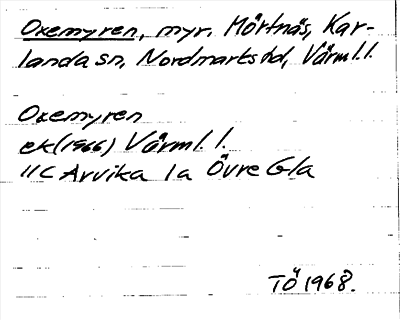 Oxemyren, myr. Mörtnäs, Kar-
landa sn, Nordmarks hd, Värml. l.
Oxemyren
ek (1966) Värml. l.
11C Arvika 1a Övre Gla
TÖ 1968.